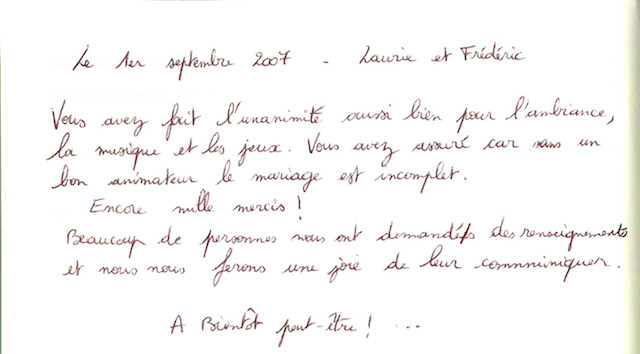 Le 1er septembre 2007 - Laurie et Frédéric
Vous avez fait l'unanimité aussi bien pour l'ambiance,
la musique et les jeux. Vous avez assuré car sans un
bon animateur le mariage est incomplet.
Encore mille mercis !
Beaucoup de personnes nous ont demandés des renseignements
et nous nous ferons une joie de leur communiquer.
A Bientôt peut-être ! ...